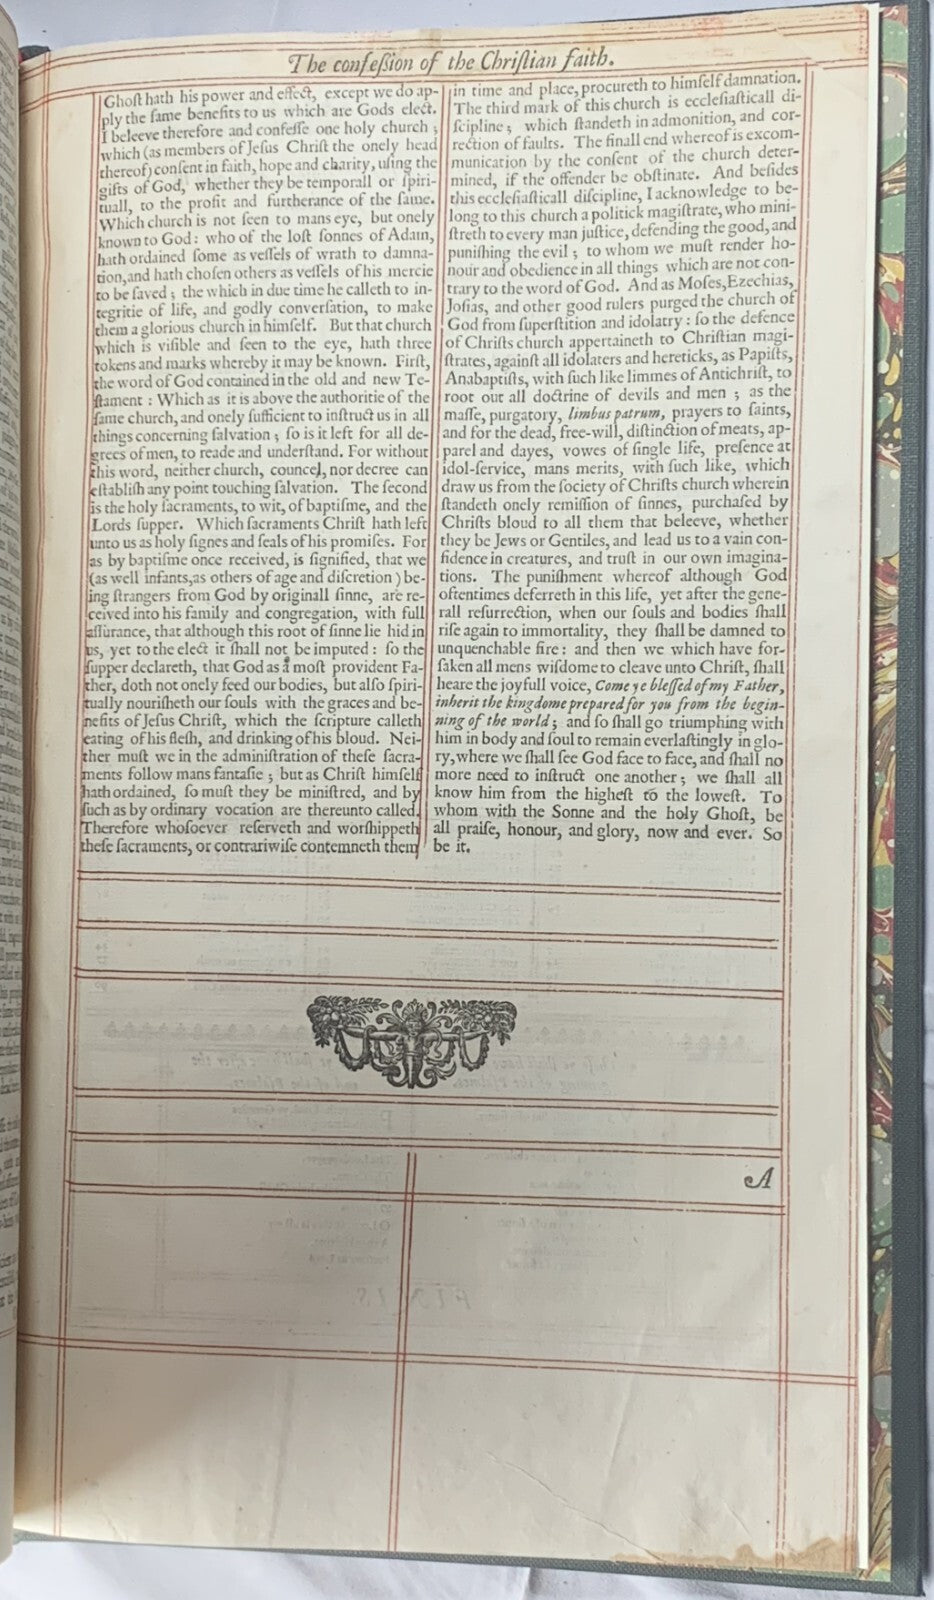 The confeſsion of the Chriſtian faith.
Ghoſt hath his power and effect, except we do ap-
ply the ſame benefits to us which are Gods elect.
I beleeve therefore and confeſſe one holy church;
which (as members of Jeſus Chriſt the onely head
thereof) conſent in faith, hope and charity, uſing the
gifts of God, whether they be temporall or ſpiri-
tuall, to the profit and furtherance of the ſame.
Which church is not ſeen to mans eye, but onely
known to God: who of the loſt ſonnes of Adam,
hath ordained ſome as veſſels of wrath to damna-
tion, and hath choſen others as veſſels of his mercie
to be ſaved; the which in due time he calleth to in-
tegritie of life, and godly converſation, to make
them a glorious church in himſelf. But that church
which is viſible and ſeen to the eye, hath three
tokens and marks whereby it may be known. Firſt,
the word of God contained in the old and new Te-
ſtament: Which as it is above the authoritie of the
ſame church, and onely ſufficient to inſtruct us in all
things concerning ſalvation; ſo is it left for all de-
grees of men, to reade and underſtand. For without
this word, neither church, councel, nor decree can
eſtabliſh any point touching ſalvation. The ſecond
is the holy ſacraments, to wit, of baptiſme, and the
Lords ſupper. Which ſacraments Chriſt hath left
unto us as holy ſignes and ſeals of his promiſes. For
as by baptiſme once received, is ſignified, that we
(as well infants, as others of age and diſcretion) be-
ing ſtrangers from God by originall ſinne, are re-
ceived into his family and congregation, with full
aſſurance, that although this root of ſinne lie hid in
us, yet to the elect it ſhall not be imputed: ſo the
ſupper declareth, that God as a moſt provident Fa-
ther, doth not onely feed our bodies, but alſo ſpiri-
tually nouriſheth our ſouls with the graces and be-
nefits of Jeſus Chriſt, which the ſcripture calleth
eating of his fleſh, and drinking of his bloud. Nei-
ther muſt we in the adminiſtration of theſe ſacra-
ments follow mans fantaſie; but as Chriſt himſelf
hath ordained, ſo muſt they be miniſtred, and by
ſuch as by ordinary vocation are thereunto called.
Therefore whoſoever reſerveth and worſhippeth
theſe ſacraments, or contrariwiſe contemneth them
in time and place, procureth to himſelf damnation.
The third mark of this church is eccleſiaſticall di-
ſcipline; which ſtandeth in admonition, and cor-
rection of faults. The finall end whereof is excom-
munication by the conſent of the church deter-
mined, if the offender be obſtinate. And beſides
this eccleſiaſticall diſcipline, I acknowledge to be-
long to this church a politick magiſtrate, who mini-
ſtreth to every man juſtice, defending the good, and
puniſhing the evil; to whom we muſt render ho-
nour and obedience in all things which are not con-
trary to the word of God. And as Moſes, Ezechias,
Joſias, and other good rulers purged the church of
God from ſuperſtition and idolatry: ſo the defence
of Chriſts church appertaineth to Chriſtian magi-
ſtrates, againſt all idolaters and hereticks, as Papiſts,
Anabaptiſts, with ſuch like limmes of Antichriſt, to
root out all doctrine of devils and men; as the
maſſe, purgatory, limbus patrum, prayers to ſaints,
and for the dead, free-will, diſtinction of meats, ap-
parel and dayes, vowes of ſingle life, preſence at
idol-ſervice, mans merits, with ſuch like, which
draw us from the ſociety of Chriſts church wherein
ſtandeth onely remiſſion of ſinnes, purchaſed by
Chriſts bloud to all them that beleeve, whether
they be Jews or Gentiles, and lead us to a vain con-
fidence in creatures, and truſt in our own imagina-
tions. The puniſhment whereof although God
oftentimes deferreth in this life, yet after the gene-
rall reſurrection, when our ſouls and bodies ſhall
riſe again to immortality, they ſhall be damned to
unquenchable fire: and then we which have for-
ſaken all mens wiſdome to cleave unto Chriſt, ſhall
heare the joyfull voice, Come ye bleſſed of my Father,
inherit the kingdome prepared for you from the begin-
ning of the world; and ſo ſhall go triumphing with
him in body and ſoul to remain everlaſtingly in glo-
ry, where we ſhall ſee God face to face, and ſhall no
more need to inſtruct one another; we ſhall all
know him from the higheſt to the loweſt. To
whom with the Sonne and the holy Ghoſt, be
all praiſe, honour, and glory, now and ever. So
be it.
A